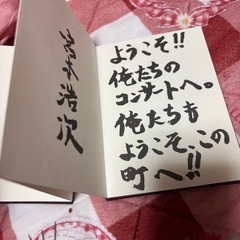 宮本浩次
ようこそ!!
俺たちの
コンサートへ。
俺たちも
ようこそ、この
町へ!!